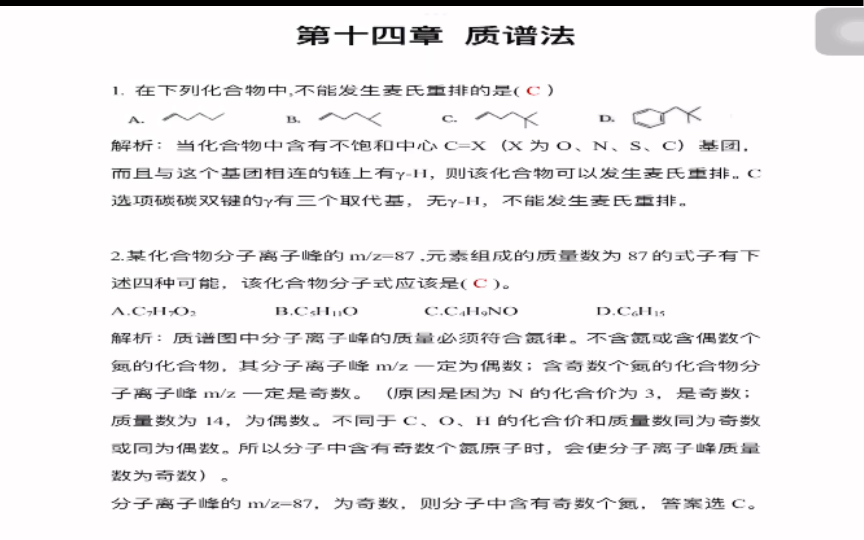 第十四章 质谱法
1. 在下列化合物中,不能发生麦氏重排的是( C )
A. B. C. D.
解析：当化合物中含有不饱和中心 C=X（X 为 O、N、S、C）基团，
而且与这个基团相连的链上有γ-H，则该化合物可以发生麦氏重排。C
选项碳碳双键的γ有三个取代基，无γ-H，不能发生麦氏重排。
2.某化合物分子离子峰的 m/z=87 ,元素组成的质量数为 87 的式子有下
述四种可能，该化合物分子式应该是( C )。
A.C₇H₇O₂ B.C₅H₁₁O C.C₄H₉NO D.C₆H₁₅
解析：质谱图中分子离子峰的质量必须符合氮律。不含氮或含偶数个
氮的化合物，其分子离子峰 m/z 一定为偶数；含奇数个氮的化合物分
子离子峰 m/z 一定是奇数。（原因是因为 N 的化合价为 3，是奇数；
质量数为 14，为偶数。不同于 C、O、H 的化合价和质量数同为奇数
或同为偶数。所以分子中含有奇数个氮原子时，会使分子离子峰质量
数为奇数）。
分子离子峰的 m/z=87，为奇数，则分子中含有奇数个氮，答案选 C。